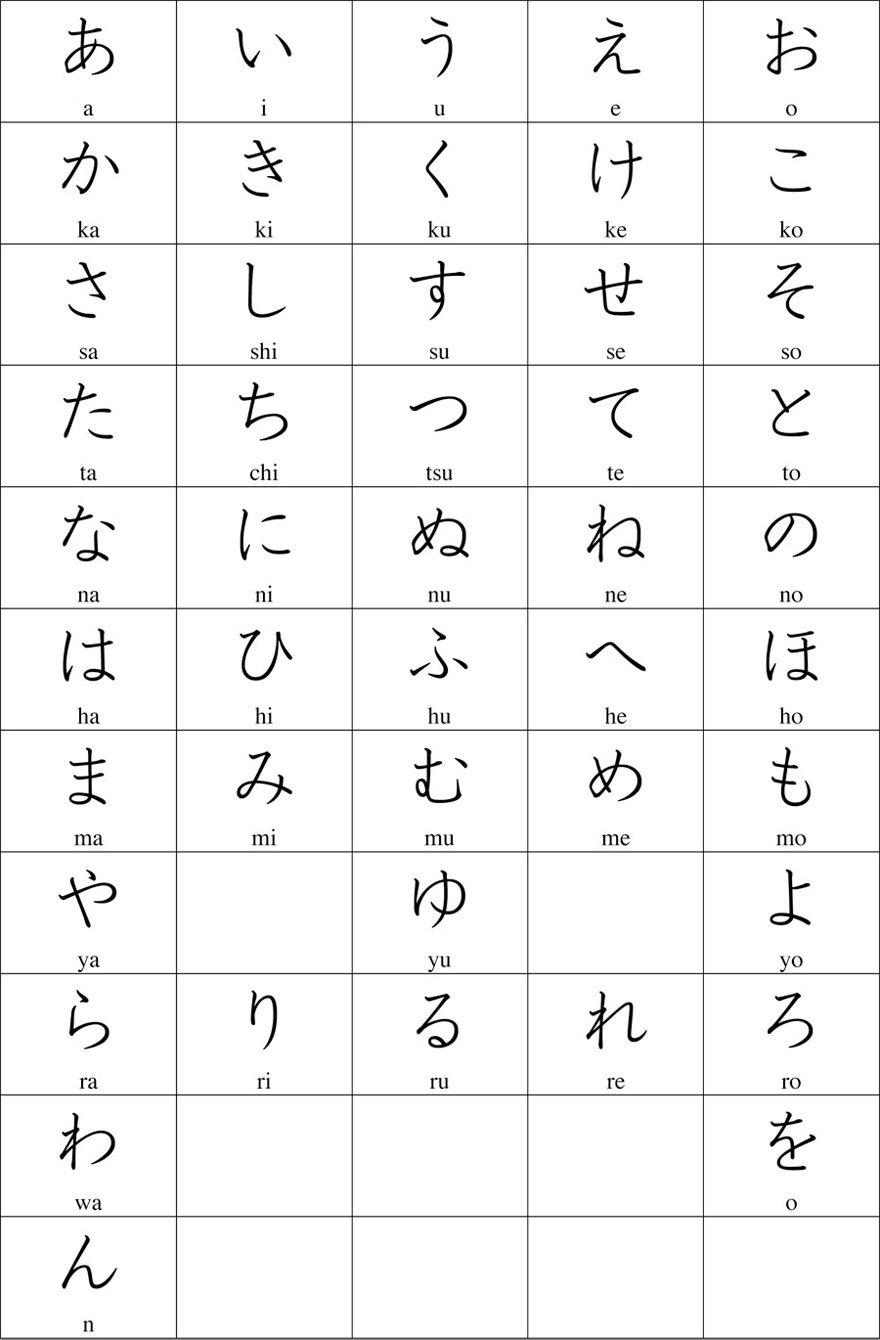 あ い う え お
a i u e o
か き く け こ
ka ki ku ke ko
さ し す せ そ
sa shi su se so
た ち つ て と
ta chi tsu te to
な に ぬ ね の
na ni nu ne no
は ひ ふ へ ほ
ha hi hu he ho
ま み む め も
ma mi mu me mo
や ゆ よ
ya yu yo
ら り る れ ろ
ra ri ru re ro
わ を
wa o
ん
n